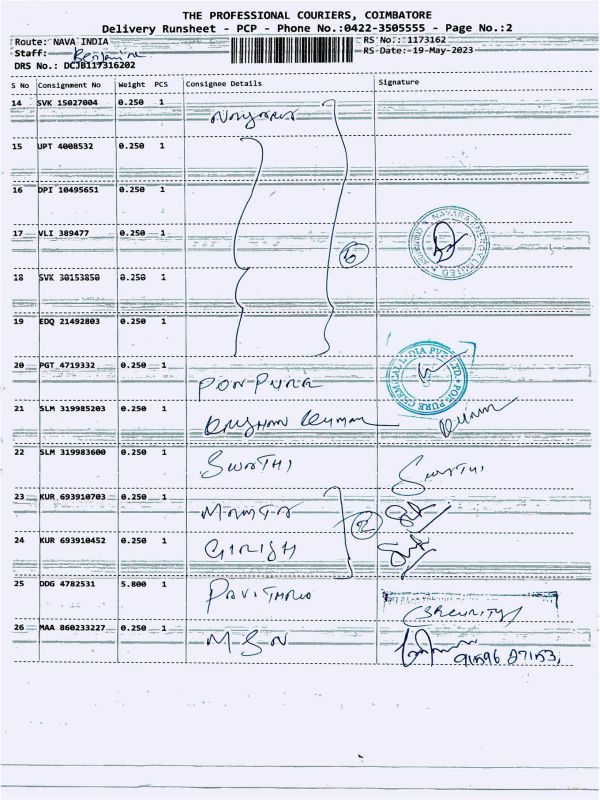 THE PROFESSIONAL COURIERS, COIMBATORE
Delivery Runsheet - PCP - Phone No.:0422-3505555 - Page No.:2
Route: NAVA INDIA RS No.: 1173162
Staff: Benjamin RS Date: 19-May-2023
DRS No.: DCJB117316202
S No Consignment No Weight PCS Consignee Details Signature
14 SVK 15027004 0.250 1
15 UPT 4008532 0.250 1
16 DPI 10495651 0.250 1
17 VLI 389477 0.250 1
18 SVK 30153850 0.250 1
6
19 EDQ 21492803 0.250 1
20 PGT 4719332 0.250 1 PON PURE
21 SLM 319985203 0.250 1 KRISHNA KUMAR
22 SLM 319983600 0.250 1 SWATHI SWATHI
23 KUR 693910703 0.250 1 MAMTA
2
24 KUR 693910452 0.250 1 GIRISH
25 DDG 4782531 5.800 1 PAVITHRA (SECURITY)
26 MAA 860233227 0.250 1 M.S.N